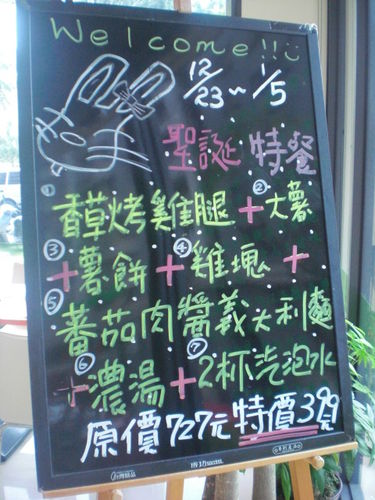 Welcome!!
12/23~1/5
聖誕特餐
① 香草烤雞腿+②大薯
③+薯餅+④雞塊+
⑤蕃茄肉醬義大利麵
⑥+濃湯+⑦2杯汽泡水
原價727元特價399